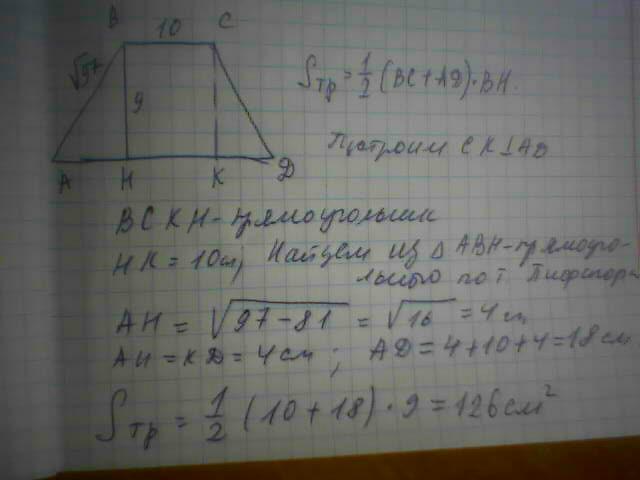 B 10 C
√97
9
A H K D
Sтр = 1/2 (BC + AD) · BH.
Построим CK ⊥ AD
BCKH - прямоугольник
HK = 10см, Найдем из Δ ABH - прямоуго-
льного по т. Пифагора
AH = √97 - 81 = √16 = 4см
AH = KD = 4см ; AD = 4 + 10 + 4 = 18см
Sтр = 1/2 (10 + 18) · 9 = 126см²